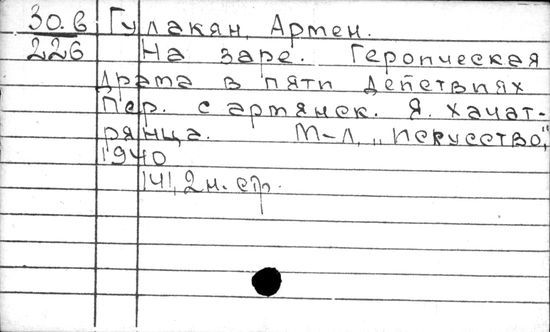 30.6 Гулакян, Артен.
226 На заре. Героическая
драма в пяти действиях
Пер. с армянск. Я. Хачат-
рянца. М-Л, „Искусство",
1940
141, 2 н. стр.